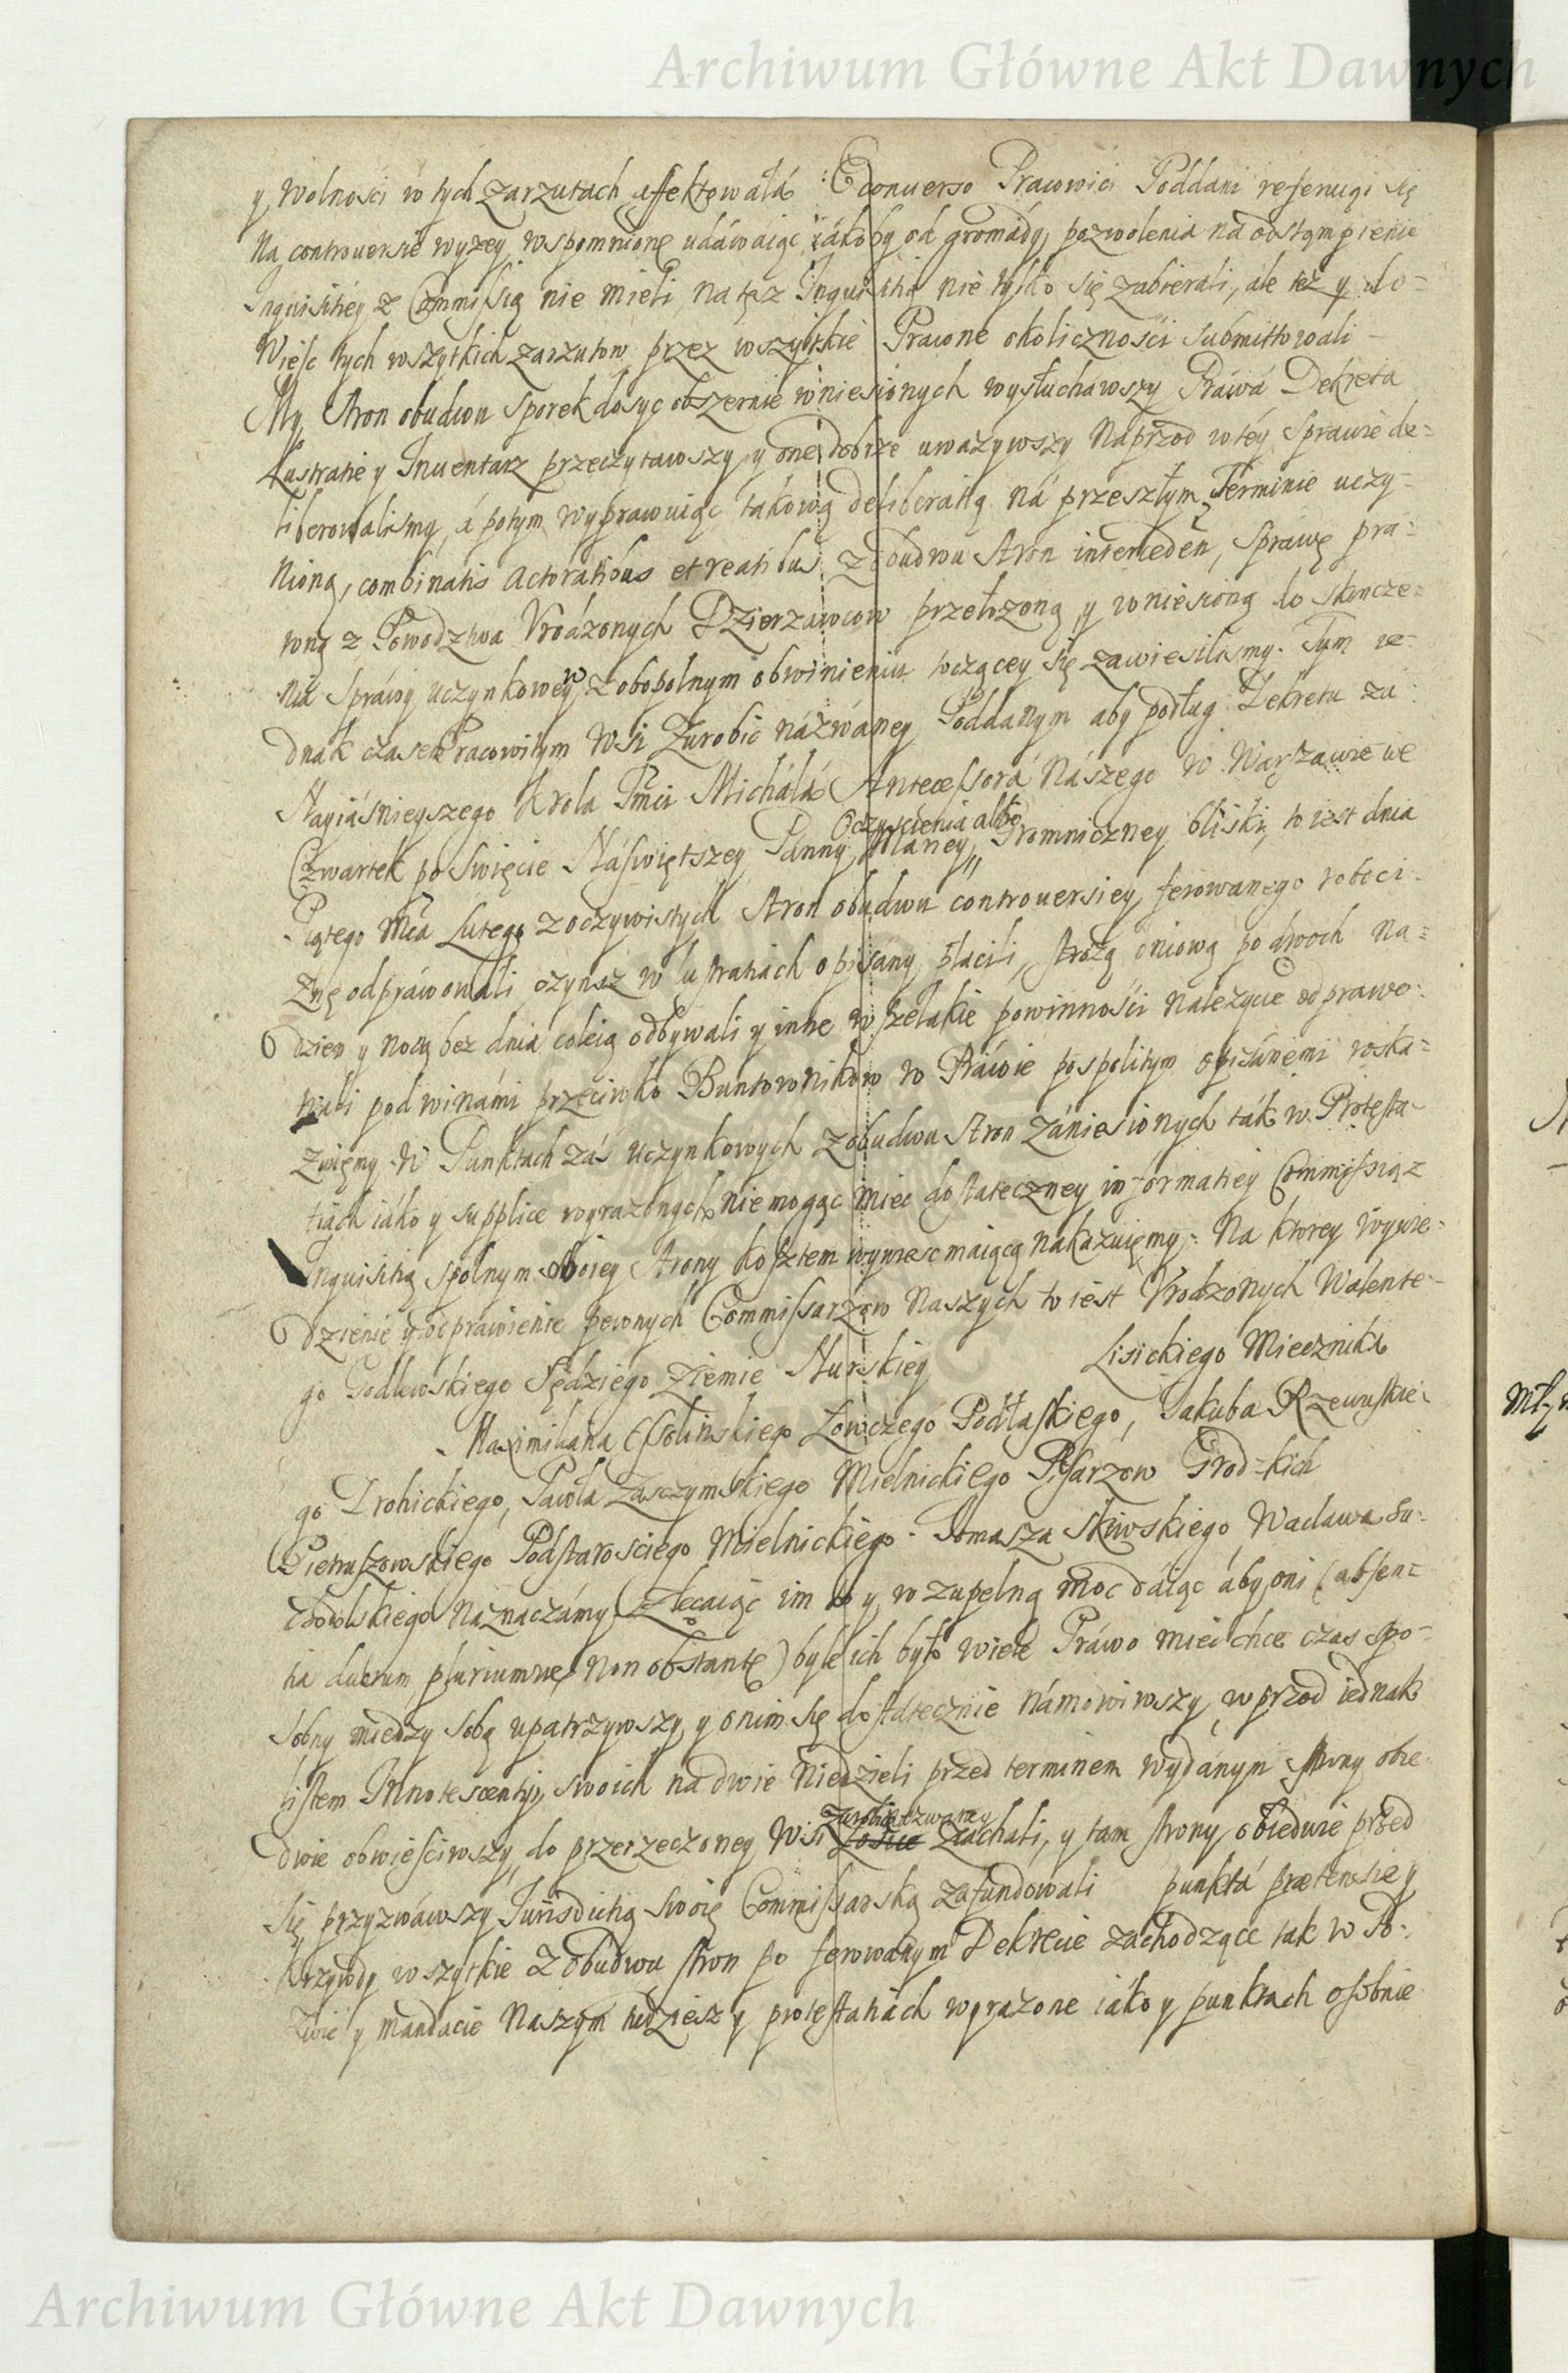 Archiwum Główne Akt Dawnych
y wolnosci w tych zarzutach affektowała. Econuerso Pracowici Poddani referuiąc się
Na controuersie wyzey wspomnione udáwaiąc iákoby od gromády pozwolenia na odstąmpienie
Inquisitiey z Commissią nie mieli, na tęz Inquisitią nie tylko się zabierali, ale też y do=
Wieść tych wszytkich zarzutow przez wszytkie Prawne okoliczności submittowali –
My Stron obudwu sporek dosyc obszernie wniesionych wysłuchawszy Práwá Dekreta
Lustratie y Inuentarz przeczytawszy y one dobrze uwazywszy Naprzod w tey Sprawie de=
liberowalismy, á potym wyprawuiąc takową deliberatią ná przeszłym Terminie uczy=
nioną, combinatis actoratibus et reatibus z obudwu Stron interceden, sprawę pra=
wną z Powodztwa Vrodzonych Dzierzawcow przełozoną y wniesioną do skoncze=
nia Spráwy uczynkowey w zobopolnym obwinieniu toczącey się zawiesilismy. Tym ie=
dnak czasem Pracowitym Wsi Zurobic názwáney Poddanym aby podług Dekretu za
Nayiásnieyszego Krola Jmci Micháłá Antecessorá Nászego w Warszawie we
Czwartek po Swięcie Náswiętszey Panny Oczyscienia albo Maryey Gromniczney bliski, to iest dnia
Piątego Mca Lutego z oczywistych Stron obudwu controuersiey ferowanego roboci=
znę odpráwowali czynsz w lustratiach opisany płacili, strożą dniową po dwoch na=
dzien y nocą bez dnia coleią odbywali y inne wszelakie powinności należycie odprawo=
wali pod winámi przeciwko Buntownikow w Práwie pospolitym opisánemi roska=
zuięmy. W Punktach záś uczynkowych z obudwu Stron zániesionych ták w Protesta=
tiách iáko y supplice wyrazonych nie mogąc miec dostateczney informatiey Commissią z
Inquisitią spolnym oboiey Strony kosztem wywiesc maiącą nakazuięmy. Na ktorey wywie=
dzienie y odprawienie pewnych Commissarzow Naszych to iest Vrodzonych Walente=
go Godlewskiego Sędziego Ziemie Nurskiey Lisickiego Miecznika
Maximiliana Ossolinskiego Łowczego Podlaskiego, Jakuba Rzewuskie=
go Drohickiego, Pawła Zaszczymskiego Mielnickiego Pisarzow Grodzkich
Pietruszowskiego Podstarosciego Mielnickiego. Tomasza Skiwskiego, Wacława Su=
chodolskiego Naznaczámy. Zlecaiąc im to y w zupełną moc dáiąc áby oni (absen=
tia duorum pluriumue non obstante) byle ich było wiele Práwo miec chce czas spo=
sobny między sobą upatrzywszy y onim się dostátecznie námowiwszy, wprzod iednak
listem Innotescentyi swoich na dwie Niedzieli przed terminem wydánym strony obie
dwie obwieściwszy, do przerzeczoney Wsi Zurobic nazwaney Ziachali, y tam strony obiedwie przed
się przyzwáwszy Jurisdictią swoię Commissarską zafundowali punktá prætensiey
krzywdy wszytkie z obudwu stron po ferowanym Dekrecie zachodzące tak w Po=
zwie y mandacie Naszym tudziesz y protestatiách wyrazone iáko y punktach osobnie
Archiwum Główne Akt Dawnych